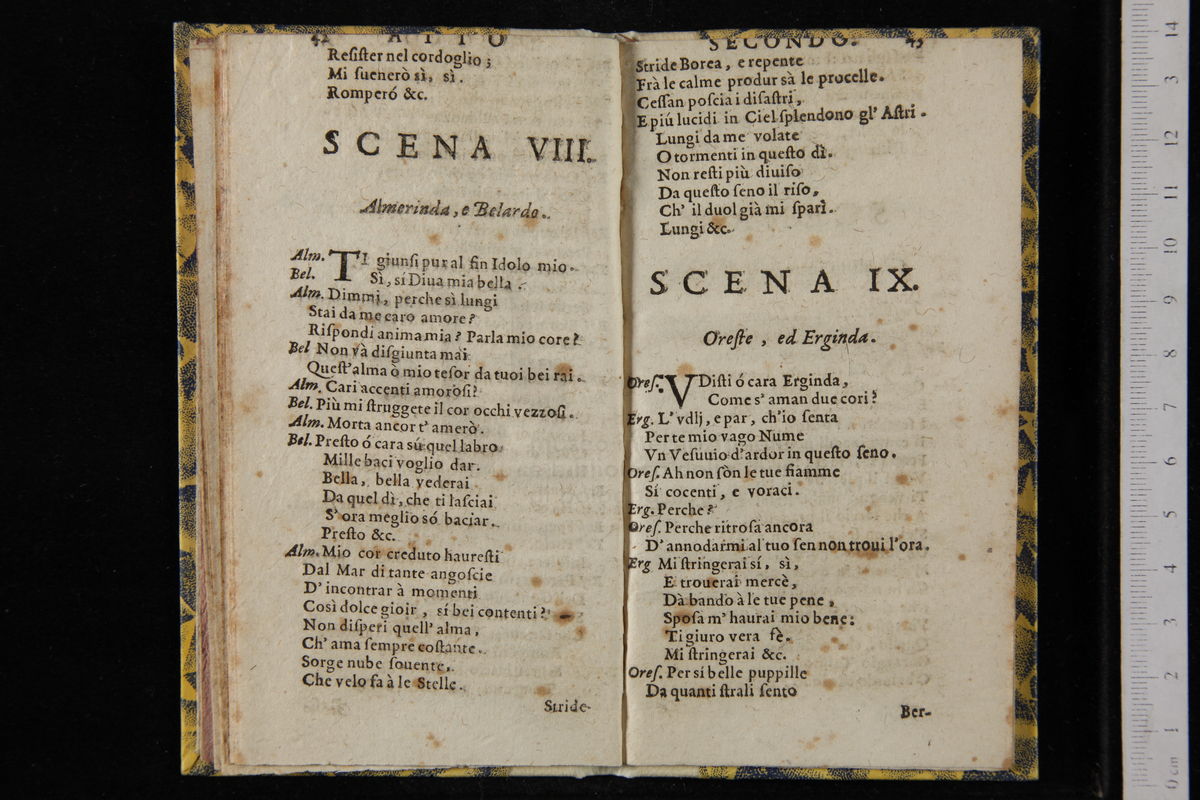 42 ATTO
Resister nel cordoglio;
Mi suenerò sì, sì.
Romperó &c.
SCENA VIII.
Almerinda, e Belardo.
Alm. TI giunsi pur al fin Idolo mio.
Bel. Sì, sí Diua mia bella.
Alm. Dimmi, perche sì lungi
Stai da me caro amore?
Rispondi anima mia? Parla mio core?
Bel Non và disgiunta mai
Quest'alma ò mio tesor da tuoi bei rai.
Alm. Cari accenti amorosi?
Bel. Più mi struggete il cor occhi vezzosi.
Alm. Morta ancor t'amerò.
Bel. Presto ó cara sú quel labro
Mille baci voglio dar.
Bella, bella vederai
Da quel dì, che ti lasciai
S'ora meglio só baciar.
Presto &c.
Alm. Mio cor creduto hauresti
Dal Mar di tante angoscie
D'incontrar à momenti
Così dolce gioir, sí bei contenti?
Non disperi quell'alma,
Ch'ama sempre costante.
Sorge nube souente,
Che velo fa à le Stelle.
Stride
SECONDO. 43
Stride Borea, e repente
Frà le calme produr sà le procelle.
Cessan poscia i disastri,
E piú lucidi in Ciel splendono gl'Astri.
Lungi da me volate
O tormenti in questo dì.
Non resti più diuiso
Da questo seno il riso,
Ch'il duol già mi sparì.
Lungi &c.
SCENA IX.
Oreste, ed Erginda.
Ores. VDisti ó cara Erginda,
Come s'aman due cori?
Erg. L'vdij, e par, ch'io senta
Per te mio vago Nume
Vn Vesuuio d'ardor in questo seno.
Ores. Ah non sòn le tue fiamme
Sí cocenti, e voraci.
Erg. Perche?
Ores. Perche ritrosa ancora
D'annodarmi al tuo sen non troui l'ora.
Erg Mi stringerai sí, sì,
E trouerai mercè,
Dà bando à le tue pene,
Sposa m'haurai mio bene:
Ti giuro vera fè.
Mi stringerai &c.
Ores. Per sì belle puppille
Da quanti strali sento
Ber-
0 cm 1 2 3 4 5 6 7 8 9 10 11 12 3 14